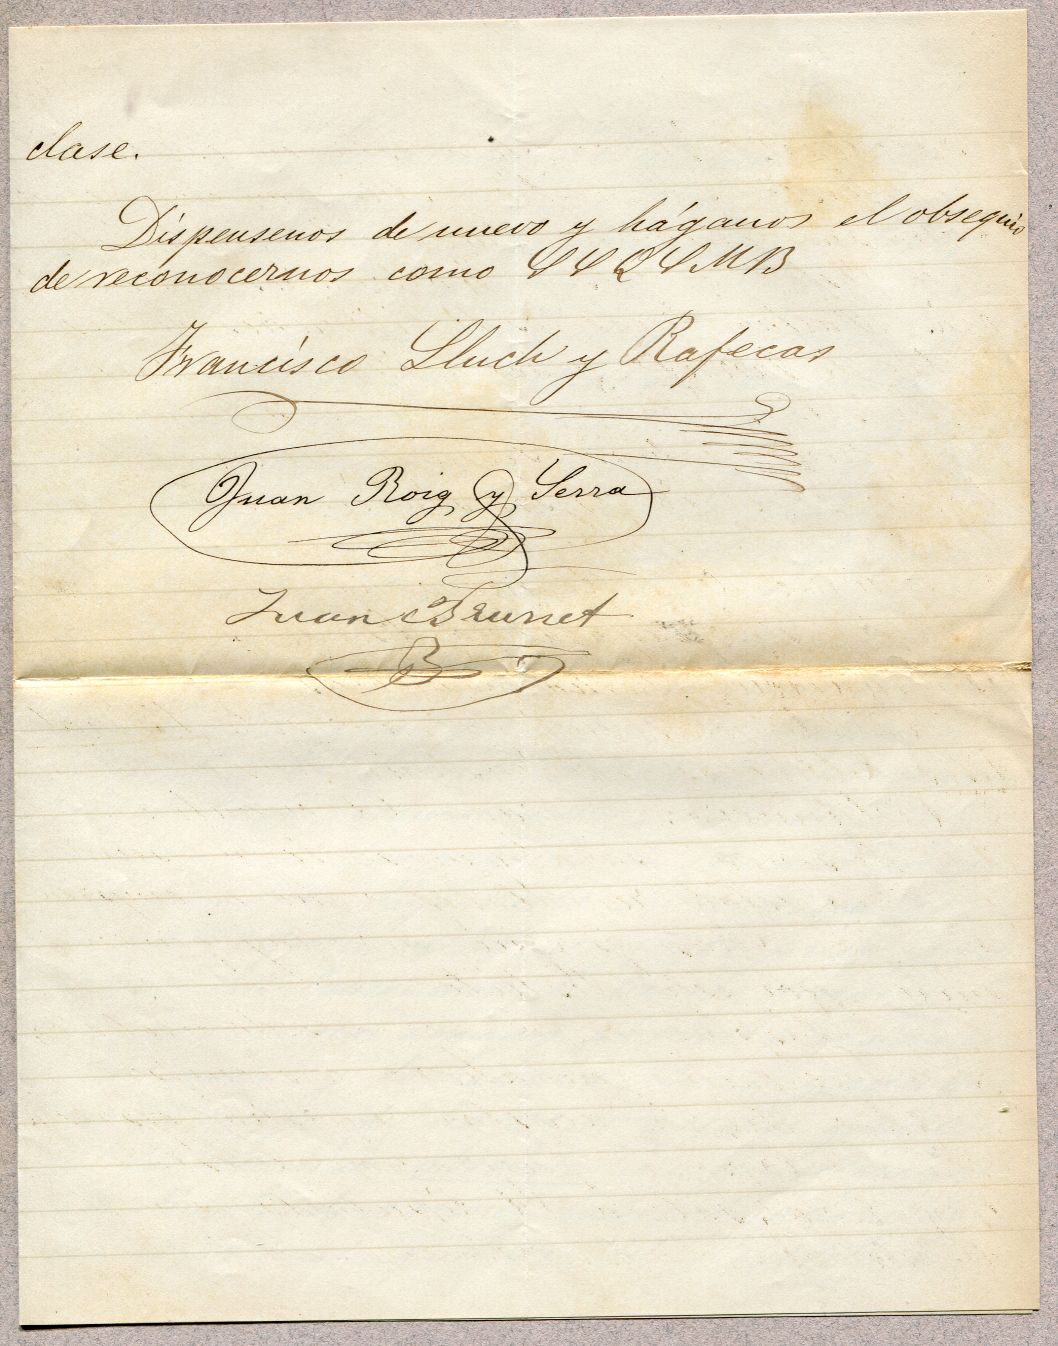 clase.
Dispensenos de nuevo y háganos el obsequio
de reconocernos como S S Q S M B
Francisco Lluch y Rafecas
Juan Roig y Serra
Juan Brunet
B